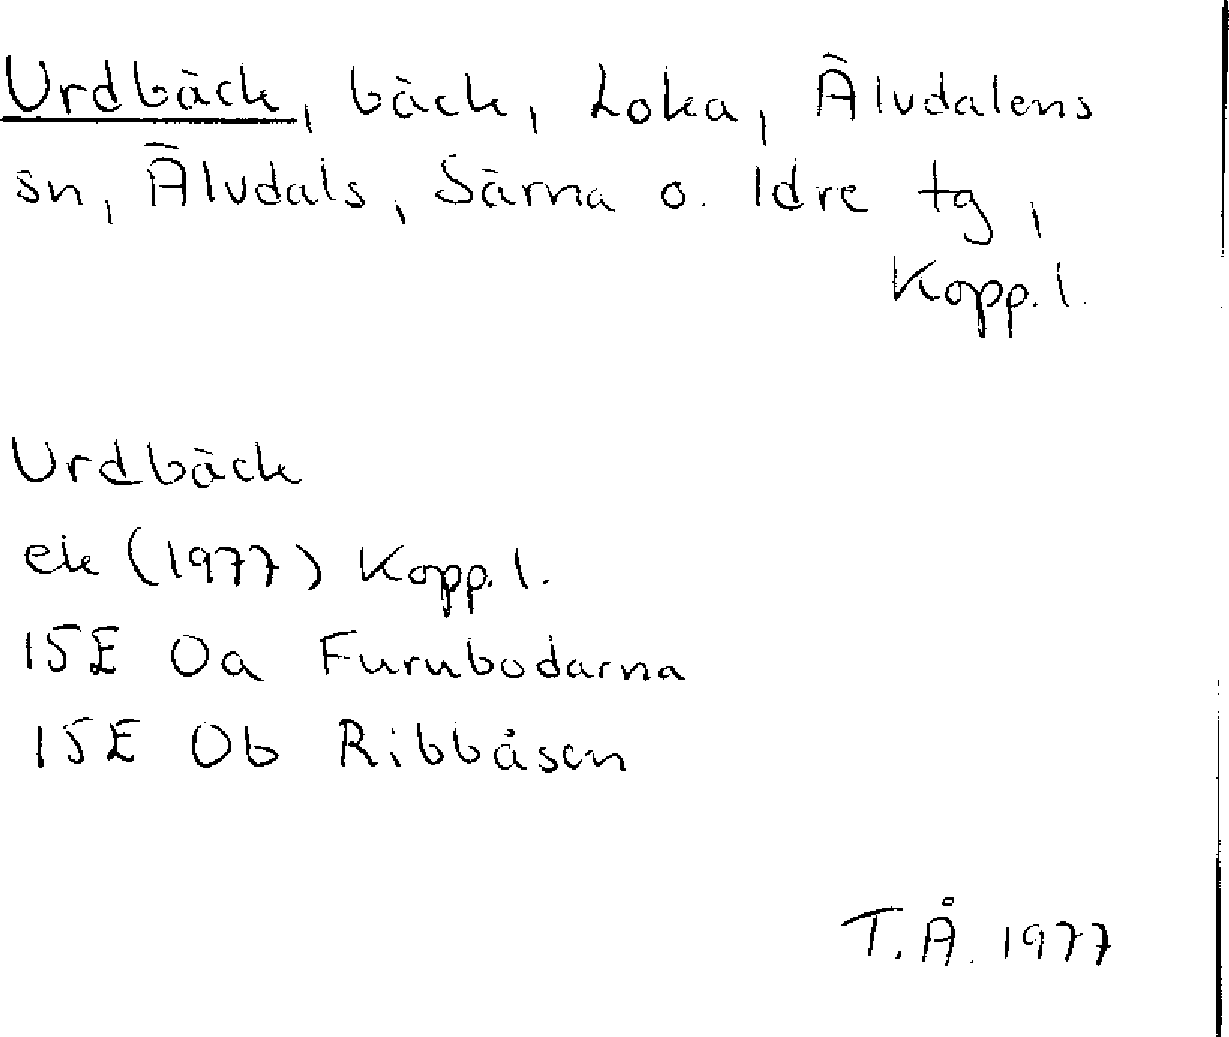 Urdbäck, bäck, Loka, Älvdalens
sn, Älvdals, Särna o. Idre tg,
Kopp. l.
Urdbäck
ek (1977) Kopp. l.
15E 0a Furubodarna
15E 0b Ribbåsen
T.Å. 1977